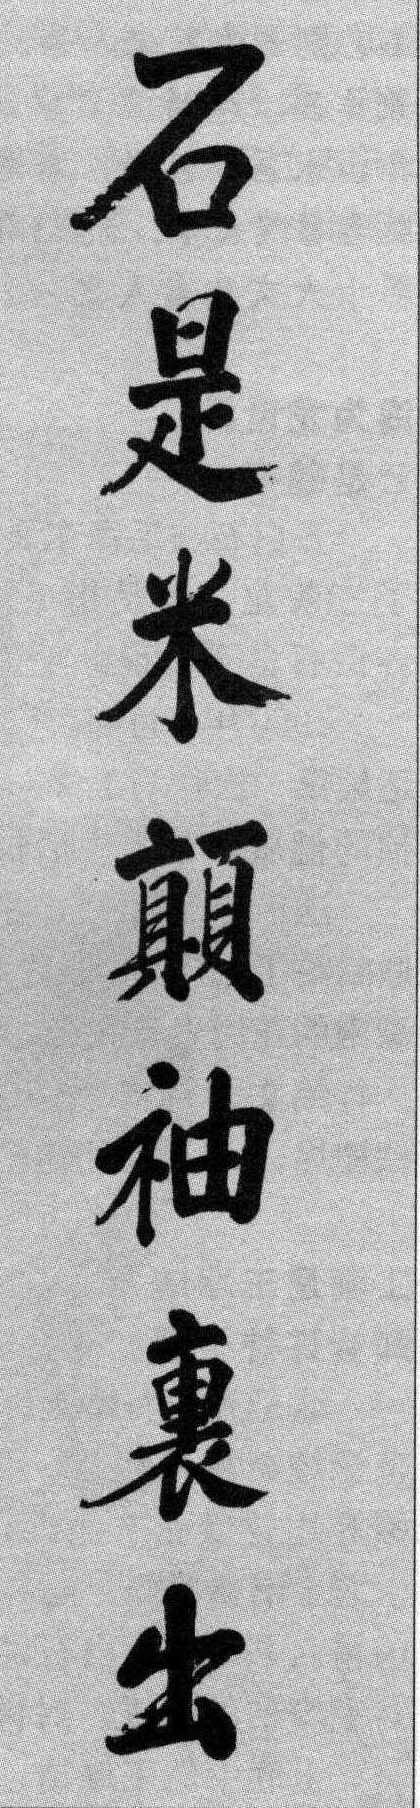 石是米顛袖裏出